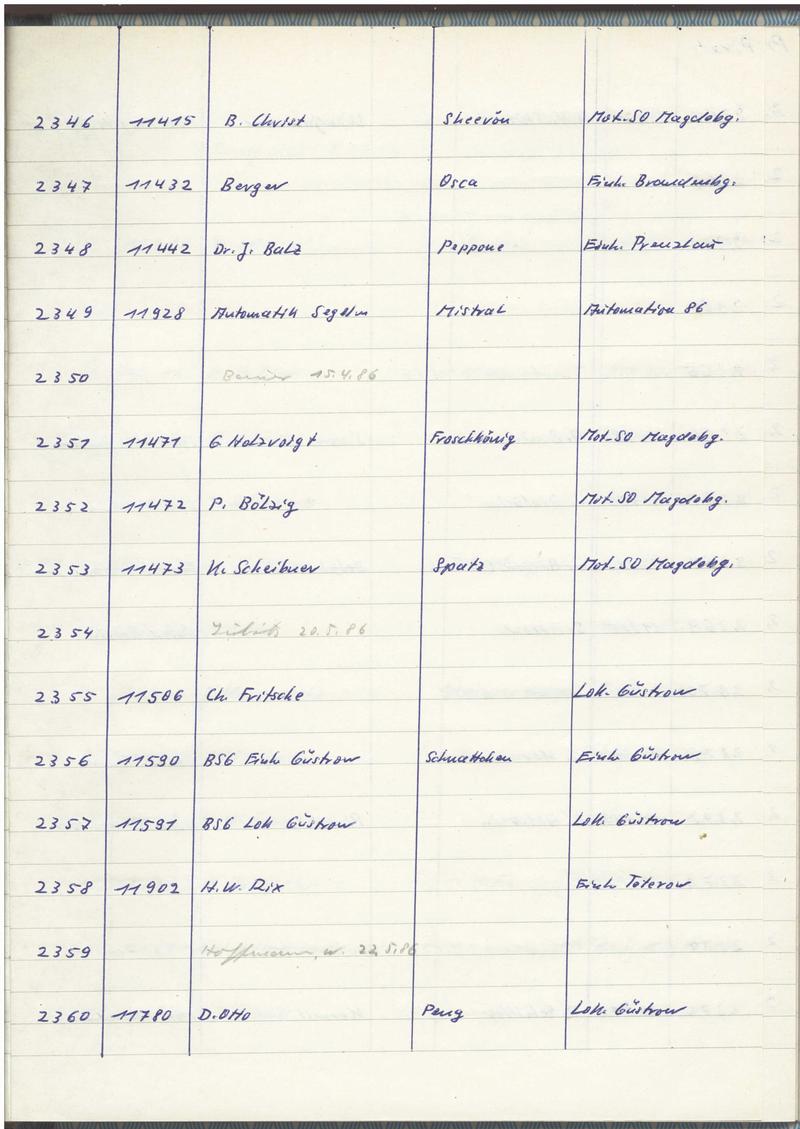 2346 11415 B. Christ Sheevön Mot-SO Magdebg.
2347 11432 Berger Osca Einh. Brandenbg.
2348 11442 Dr. J. Balz Peppone Einh. Prenzlau
2349 11928 Automatik Segeln Mistral Automation 86
2350 15.4.86
2351 11471 G Holzvoigt Froschkönig Mot-SO Magdebg.
2352 11472 P. Bölzig Mot-SO Magdebg.
2353 11473 K. Scheibner Spatz Mot-SO Magdebg.
2354 20.5.86
2355 11506 Ch. Fritsche Lok. Güstrow
2356 11590 BSG Einh. Güstrow Schnattchen Einh. Güstrow
2357 11591 BSG Lok Güstrow Lok. Güstrow
2358 11902 H.W. Rix Einh. Teterow
2359 Hoffmann, W. 22.5.86
2360 11780 D. Otto Peng Lok. Güstrow